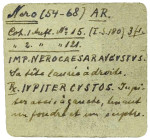 Nero (54-68) AR.
Coh. I. Aufl. No. 15. (I. S. 180) 3 ffs
" 2. " " 121.
IMP. NERO CAESAR AVGVSTVS.
Sa tête laurée à droite.
R. IVPITER CVSTOS. Jupi-
ter assis à gauche, tenant
un foudre et un sceptre.